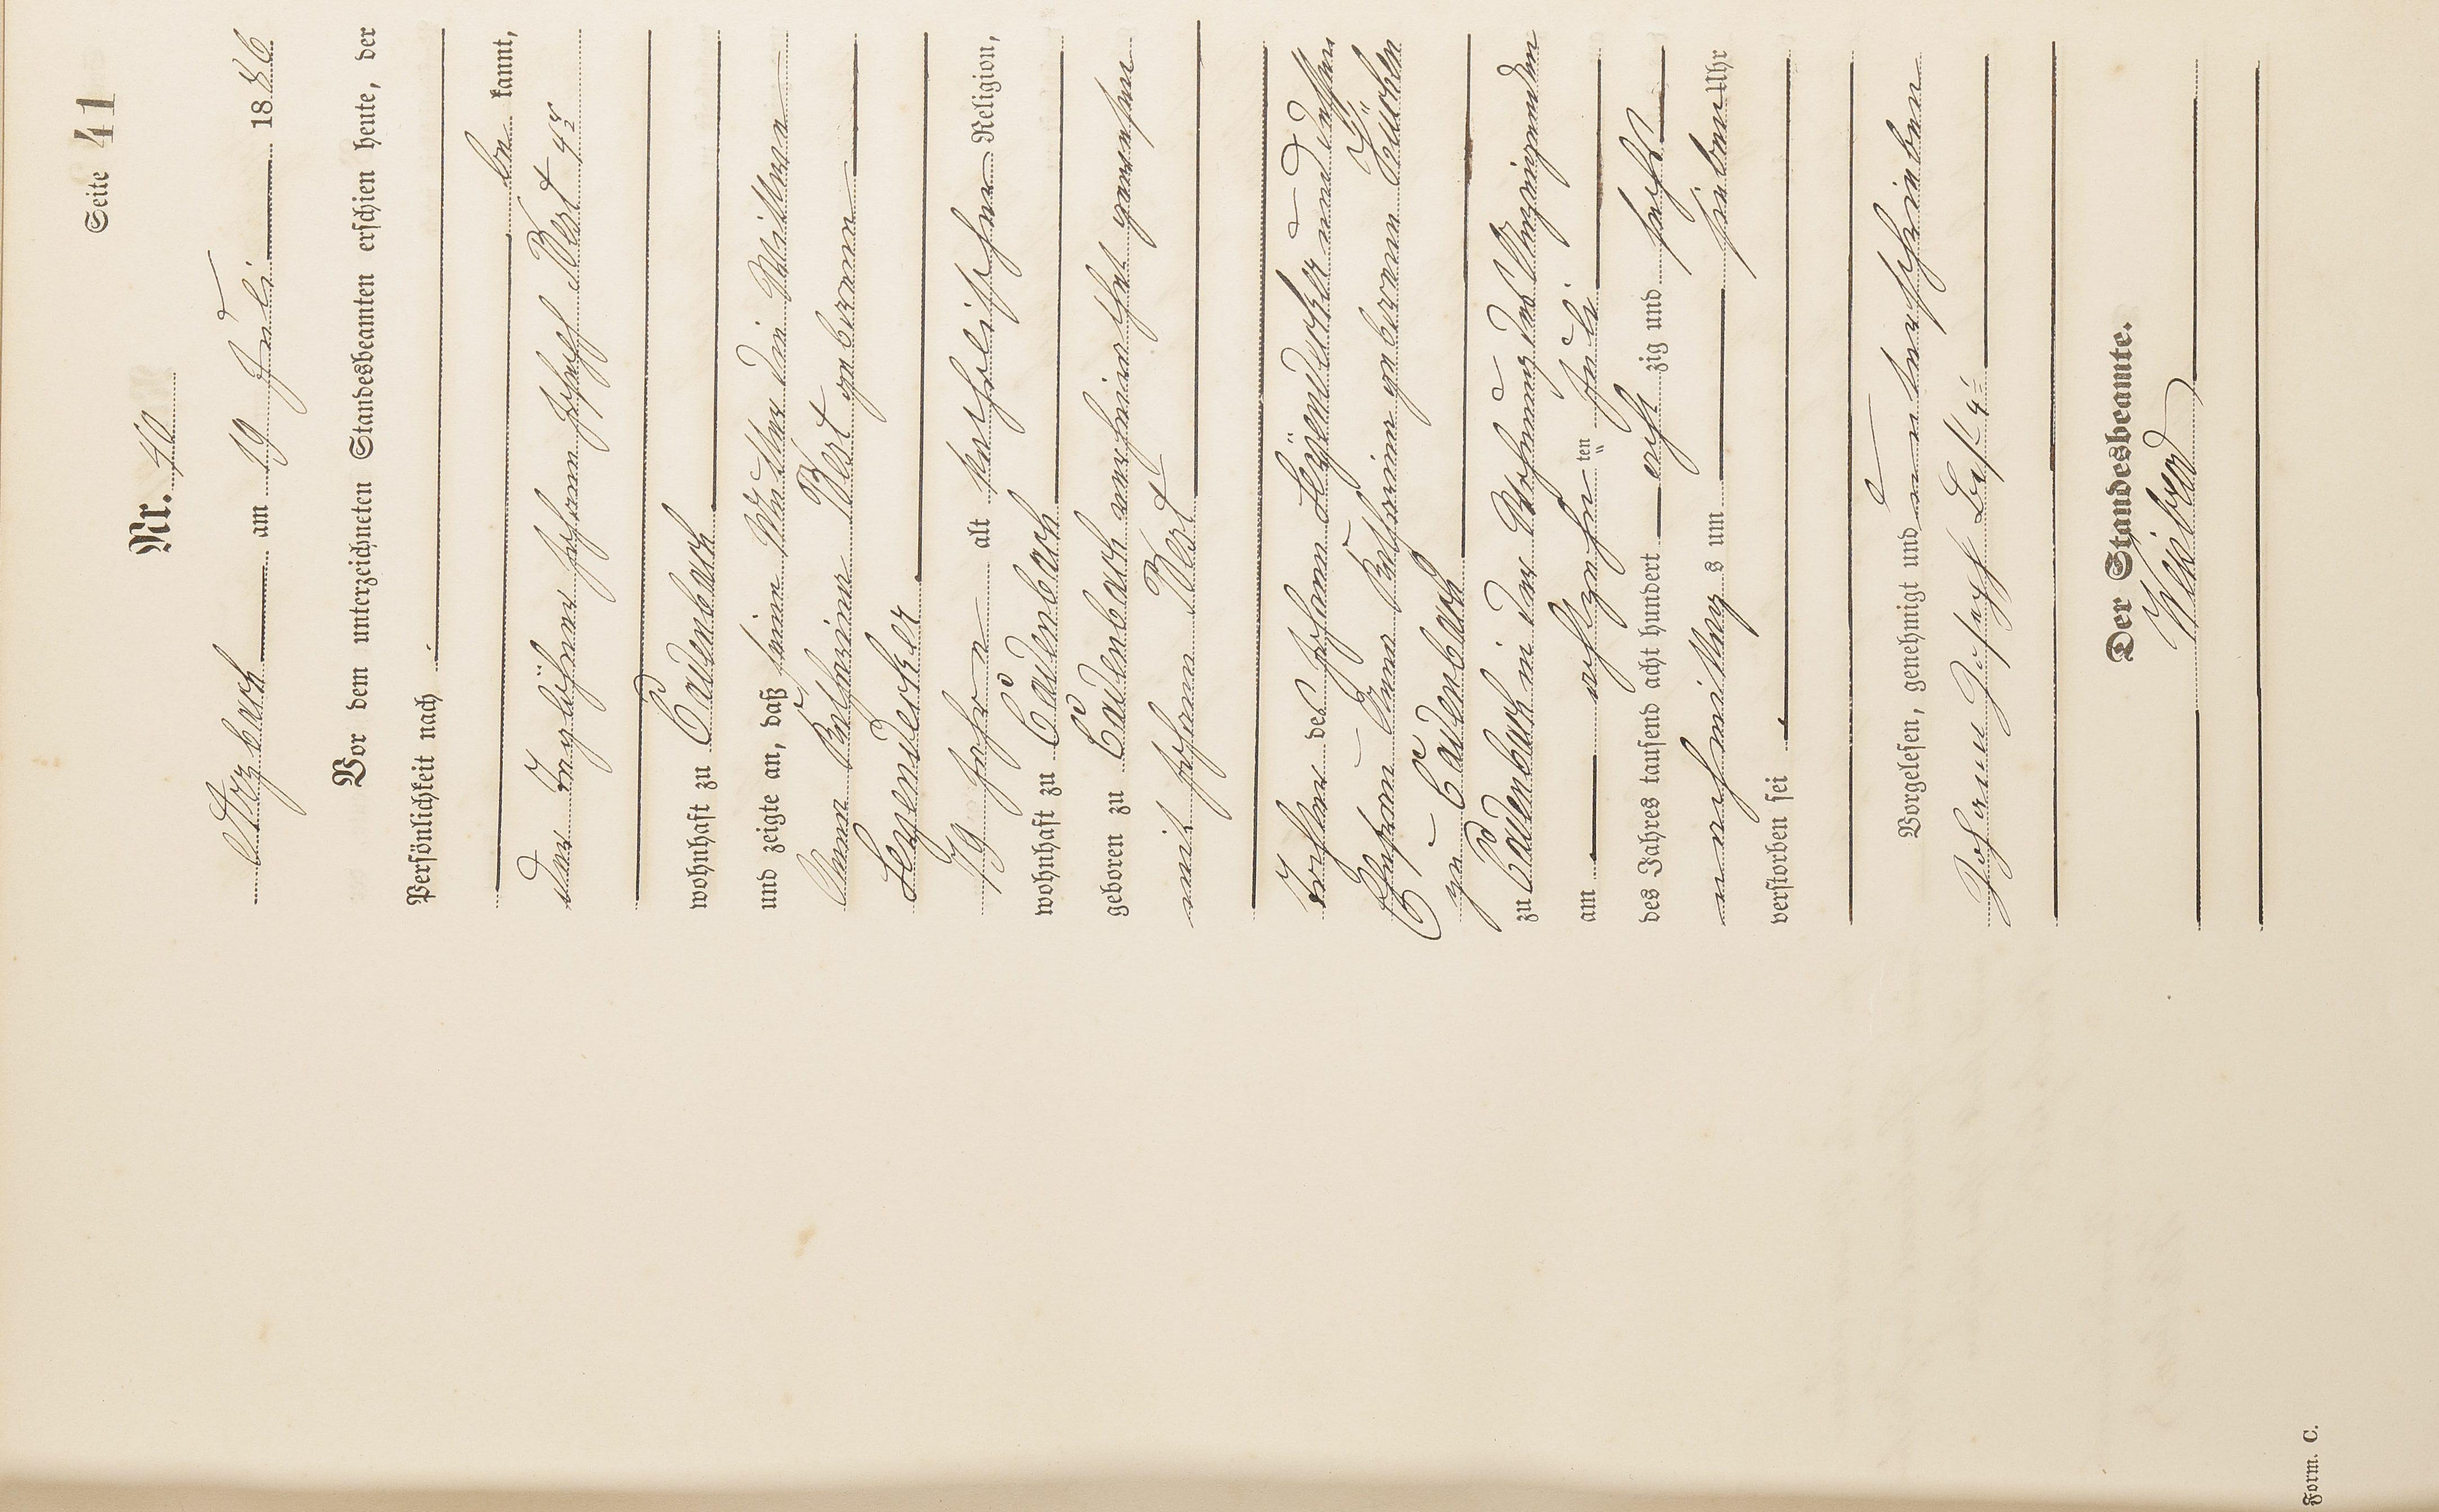 Seite 41
Nr. 40
Arzbach am 19 Juli 1886
Vor dem unterzeichneten Standesbeamten erschien heute, der
Persönlichkeit nach
be kannt,
der Taglöhner Johann Joseph
wohnhaft zu Cadenbach
und zeigte an, daß seine Mutter die Wittwe
Anna Katharina geborene
79 Jahre alt katholischer Religion,
wohnhaft zu Cadenbach
geboren zu Cadenbach verheirathet gewesen
mit Johann
Tochter des Johann und dessen
Ehefrau Anna Katharina geborene
zu Cadenbach
zu Cadenbach in der Wohnung des Anzeigenden
am achtzehn ten Juli
des Jahres tausend acht hundert acht zig und sechs
nachmittags um sieben Uhr
verstorben sei
Vorgelesen, genehmigt und unterschrieben
Johann Joseph
Der Standesbeamte.
Form. C.